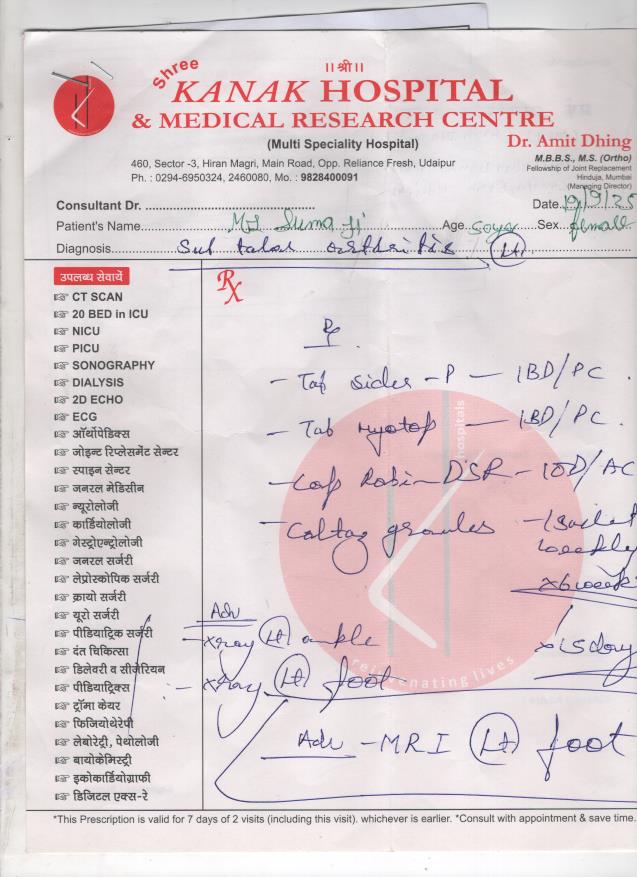 Shree
॥ श्री ॥
KANAK HOSPITAL
& MEDICAL RESEARCH CENTRE
(Multi Speciality Hospital)
Dr. Amit Dhing
M.B.B.S., M.S. (Ortho)
Fellowship of Joint Replacement
Hinduja, Mumbai
(Managing Director)
460, Sector -3, Hiran Magri, Main Road, Opp. Reliance Fresh, Udaipur
Ph. : 0294-6950324, 2460080, Mo. : 9828400091
Consultant Dr. Date 19/9/25
Patient's Name Suma ji Age 50 yr Sex female
Diagnosis Sub talar arthritis (Lt)
उपलब्ध सेवायें
CT SCAN
20 BED in ICU
NICU
PICU
SONOGRAPHY
DIALYSIS
2D ECHO
ECG
ऑर्थोपेडिक्स
जोइन्ट रिप्लेसमेंट सेन्टर
स्पाइन सेन्टर
जनरल मेडिसीन
न्यूरोलोजी
कार्डियोलोजी
गेस्ट्रोएन्ट्रोलोजी
जनरल सर्जरी
लेप्रोस्कोपिक सर्जरी
क्रायो सर्जरी
यूरो सर्जरी
पीडियाट्रिक सर्जरी
दंत चिकित्सा
डिलेवरी व सीजेरियन
पीडियाट्रिक्स
ट्रॉमा केयर
फिजियोथेरेपी
लेबोरेट्री, पेथोलोजी
बायोकेमिस्ट्री
इकोकार्डियोग्राफी
डिजिटल एक्स-रे
Rx
Rx
- Tab -P - 1BD/PC.
- Tab Myotop - 1BD/PC.
- Cap Robin-DSR - 1OD/AC
- granules - 1 sachet
weekly
x6 week
Adv
- xray (Lt) ankle x15day
- xray (Lt) foot
Adv - MRI (Lt) foot
hospitals
rejuvenating lives
*This Prescription is valid for 7 days of 2 visits (including this visit). whichever is earlier. *Consult with appointment & save time.